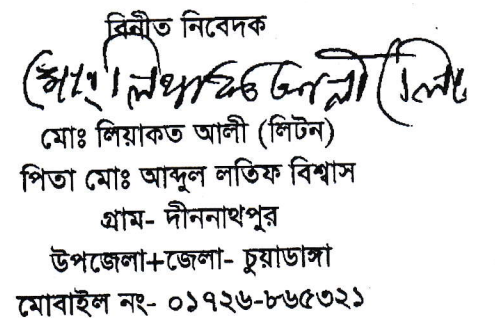 বিনীত নিবেদক
মোঃ লিয়াকত আলী (লিটন)
মোঃ লিয়াকত আলী (লিটন)
পিতা মোঃ আব্দুল লতিফ বিশ্বাস
গ্রাম- দীননাথপুর
উপজেলা+জেলা- চুয়াডাঙ্গা
মোবাইল নং- ০১৭২৬-৮৬৫৩২১